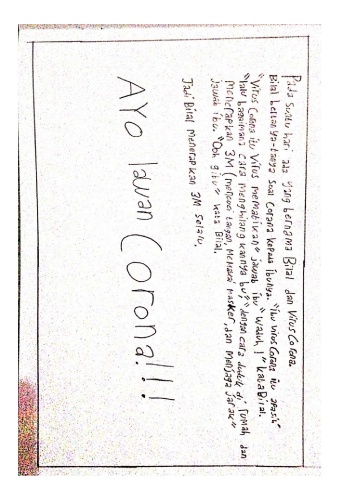 Pada suatu hari ada yang bernama Bilal dan Virus Corona
Bilal bertanya-tanya soal Corona kepada Ibunya. "Ibu virus Corona itu apasih"
"Virus Corona itu Virus mematikan" jawab ibu "Waduh!" kata Bilal.
"lalu bagaimana cara menghilangkannya bu?" dengan cara duduk di rumah dan
menerapkan 3M (mencuci tangan, Memakai masker, dan menjaga jarak"
jawab ibu. "Ooh gitu" kata Bilal.
Jadi Bilal menerapkan 3M selalu,
AYO lawan Corona!!!